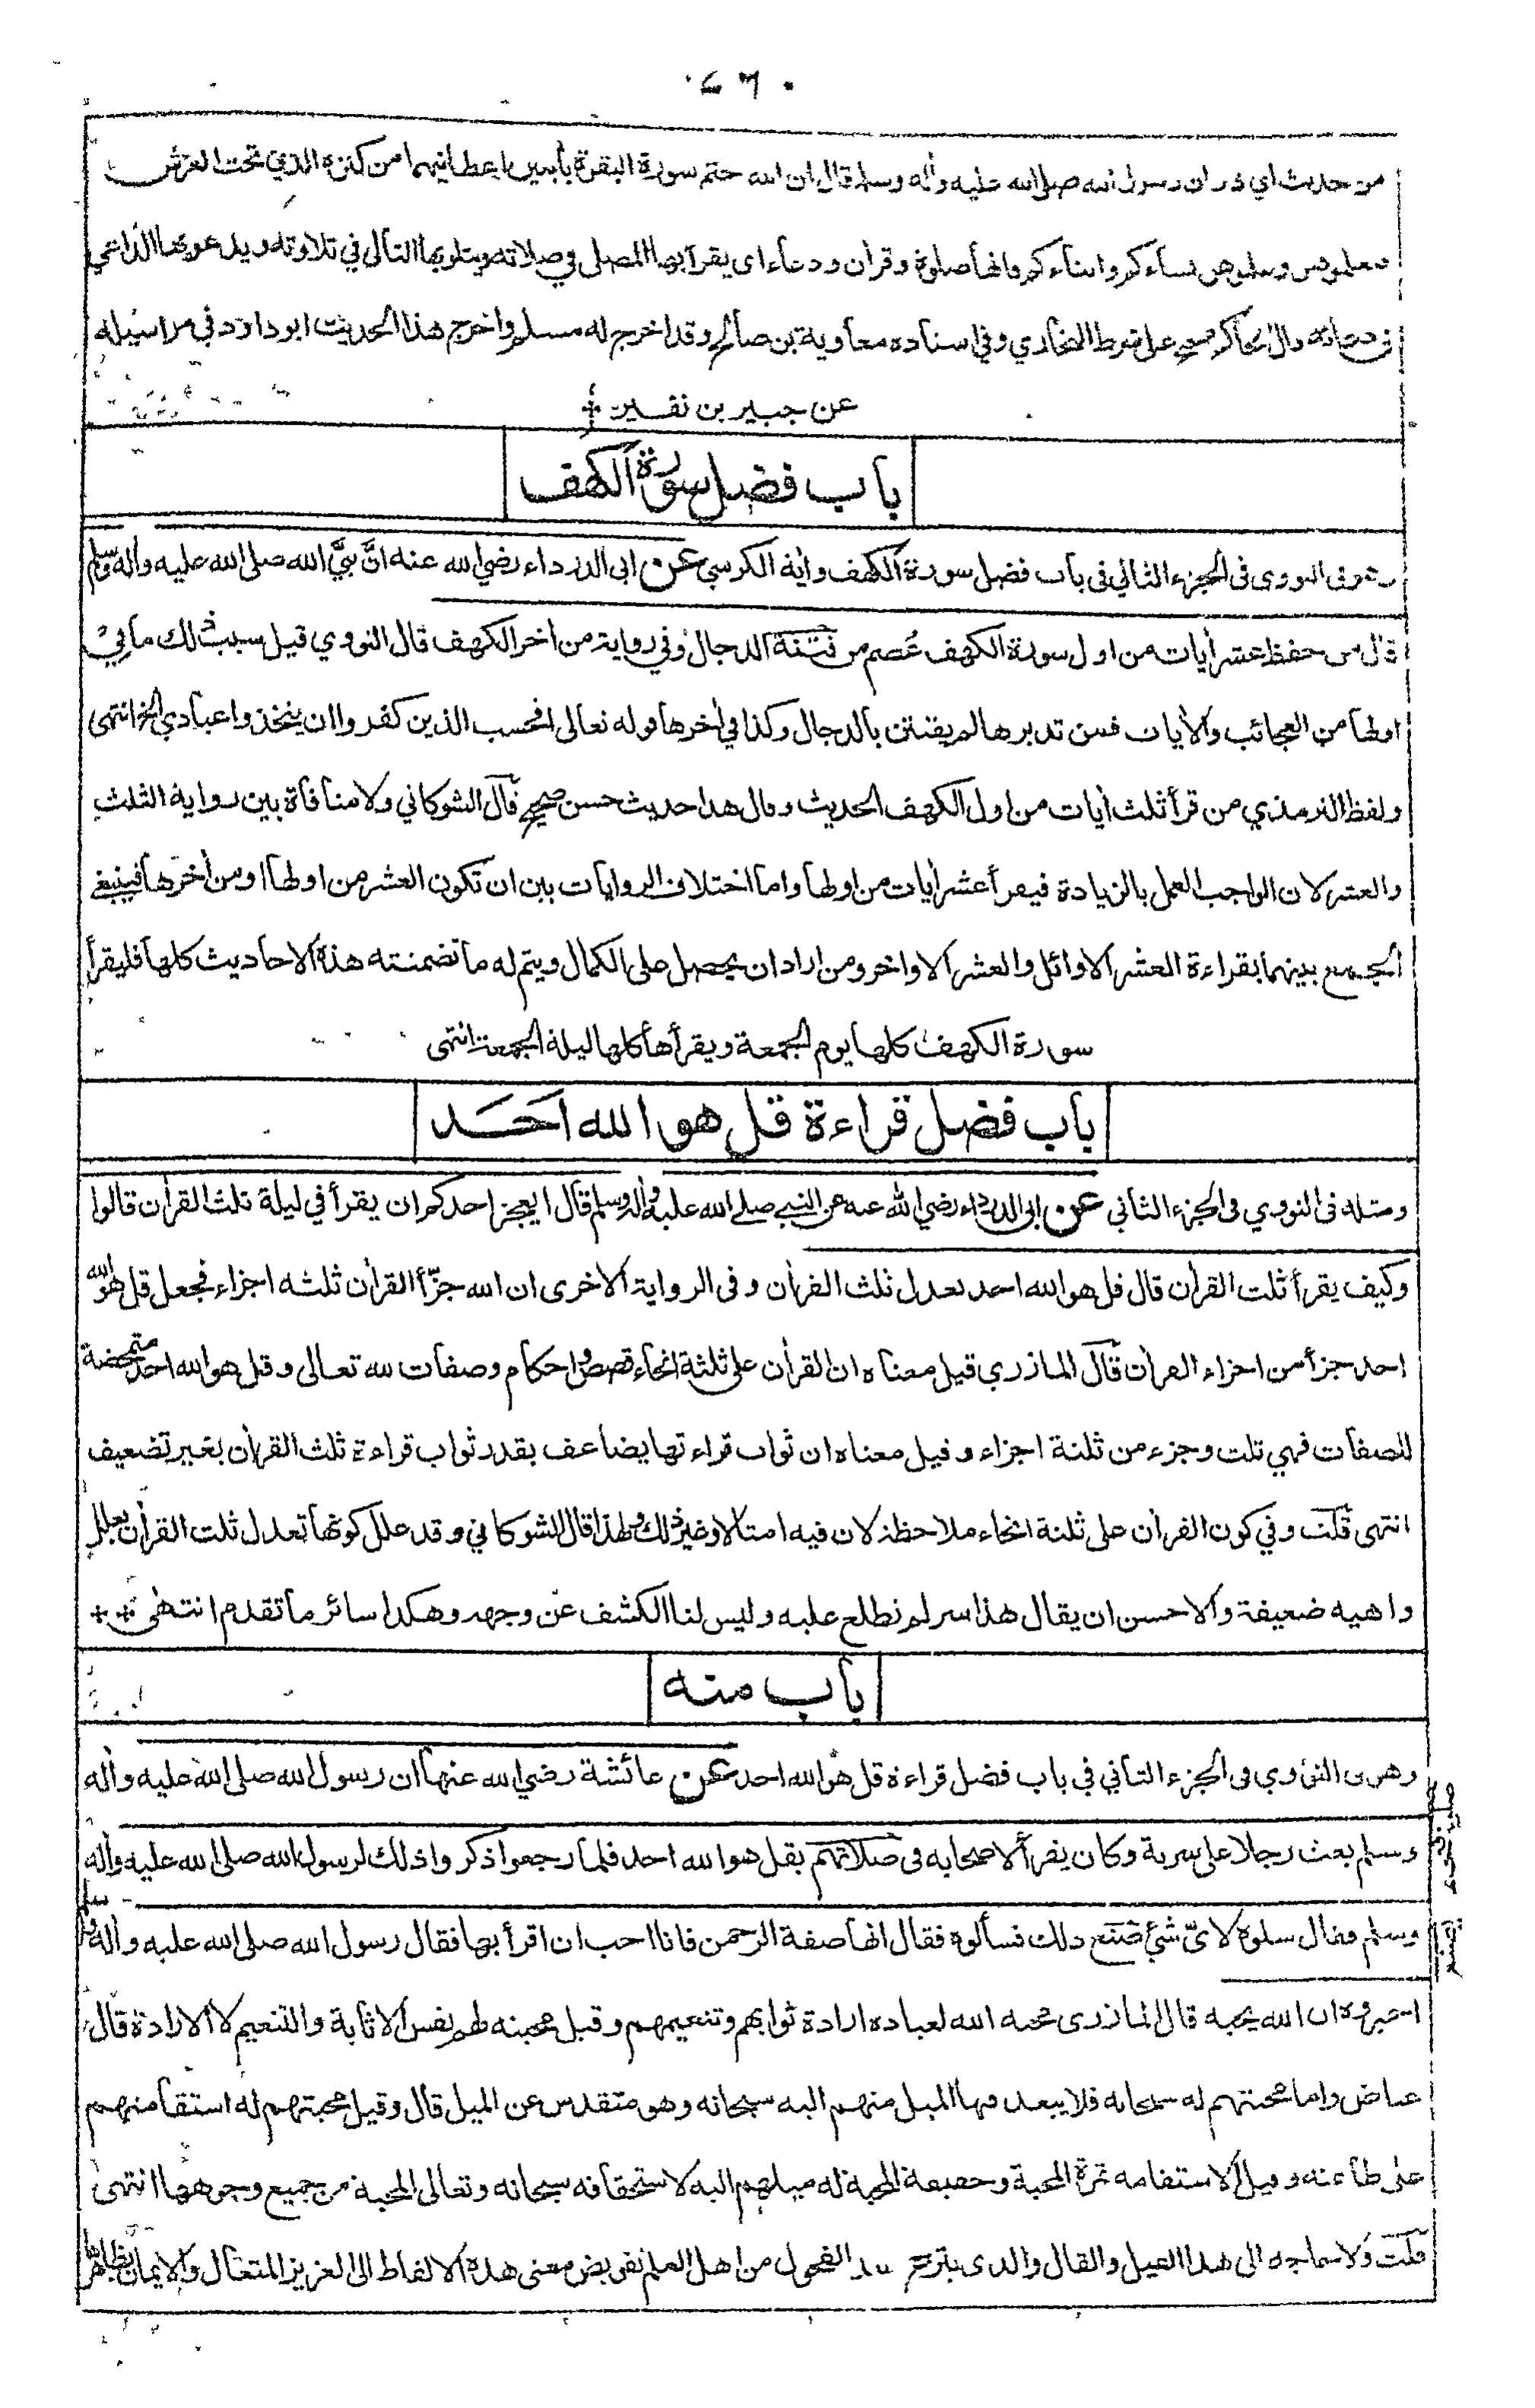 من حديث ابي ذر ان رسول الله صلى الله عليه وأله وسلم قال ان الله ختم سورة البقرة بأيتين اعطانيهما من كنزه الذي تحت العرش
فتعلموهن وعلموهن نساءكم وابناءكم فانها صلوة وقرأن ودعاء اى يقرأ بها المصلى في صلاته ويتلو بها التالى في تلاوته ويدعو بها الداعي
في دعائه وقال الحاكم صحيح على شرط البخاري وفي اسناده معاوية بن صالح وقد اخرج له مسلم واخرج هذا الحديث ابو داود في مراسيله
عن جبير بن نفير
باب فضل سورة الكهف
النووى فى الجزء الثاني فى باب فضل سورة الكهف وأية الكرسي عن ابى الدرداء رضي الله عنه انَّ نبيَّ الله صلى الله عليه وأله وسلم
قال من حفظ عشر أيات من اول سورة الكهف عُصم من فتنة الدجال وفي رواية من أخر الكهف قال النووي قيل سبب ذلك ما في
اولها من العجائب والأيات فمن تدبرها لم يفتتن بالدجال وكذا في أخرها قوله تعالى افحسب الذين كفروا ان يتخذوا عبادي الخ انتهى
ولفظ الترمذي من قرأ ثلث أيات من اول الكهف الحديث وقال هذا حديث حسن صحيح قال الشوكاني ولا منافاة بين رواية الثلث
والعشر لان الواجب العمل بالزيادة فيقرأ عشر أيات من اولها واما اختلاف الروايات بين ان تكون العشر من اولها او من أخرها فينبغي
الجمع بينهما بقراءة العشر الاوائل والعشر الاواخر ومن اراد ان يحصل على الكمال ويتم له ما تضمنته هذه الاحاديث كلها فليقرأ
سورة الكهف كلها يوم الجمعة ويقرأها كلها ليلة الجمعة انتهى
باب فضل قراءة قل هو الله احَد
ومثله فى النووي فى الجزء الثاني عن ابى الدرداء رضي الله عنه عن النبي صلى الله عليه وأله وسلم قال ايعجز احدكم ان يقرأ في ليلة ثلث القرأن قالوا
وكيف يقرأ ثلث القرأن قال قل هو الله احد تعدل ثلث القرأن وفى الرواية الاخرى ان الله جزّأ القرأن ثلثه اجزاء فجعل قل هو الله
احد جزأ من اجزاء القرأن قال المازري قيل معناه ان القرأن على ثلثة انحاء قصص واحكام وصفات لله تعالى وقل هو الله احد متمحضة
للصفات فهي ثلث وجزء من ثلثة اجزاء وقيل معناه ان ثواب قراءتها يضاعف بقدر ثواب قراءة ثلث القرأن بغير تضعيف
انتهى قلت وفي كون القرأن على ثلثة انحاء ملاحظة لان فيه امثالا وغير ذلك ولهذا قال الشوكاني وقد علل كونها تعدل ثلث القرأن بعلل
واهيه ضعيفة والاحسن ان يقال هذا سر لم نطلع عليه وليس لنا الكشف عن وجهه وهكذا سائر ما تقدم انتهى
باب منه
وهو فى النووي فى الجزء الثاني في باب فضل قراءة قل هو الله احد عن عائشة رضي الله عنها ان رسول الله صلى الله عليه وأله
وسلم بعث رجلا على سرية وكان يقرأ لاصحابه فى صلاتهم بقل هو الله احد فلما رجعوا ذكروا ذلك لرسول الله صلى الله عليه وأله
وسلم فقال سلوه لايّ شئ صنع ذلك فسألوه فقال انها صفة الرحمن فانا احب ان اقرأ بها فقال رسول الله صلى الله عليه وأله وسلم
اخبروه ان الله يحبه قال المازرى محبه الله لعباده ارادة ثوابهم وتنعيمهم وقيل محبته لهم نفس الاثابة والتنعيم لا الارادة قال
عياض واما محبتهم له سبحانه فلا يبعد فيها الميل منهم اليه سبحانه وهو متقدس عن الميل قال وقيل محبتهم له استقامتهم
على طاعته وقيل الاستقامه ثمرة المحبة وحقيقة المحبة له ميلهم اليه لاستحقاقه سبحانه وتعالى المحبة من جميع وجوهها انتهى
قلت ولا حاجه الى هذا القيل والقال والذى يترجح عند الفحول من اهل العلم تفويض معنى هذه الالفاظ الى العزيز المتعال والايمان بظاهرها